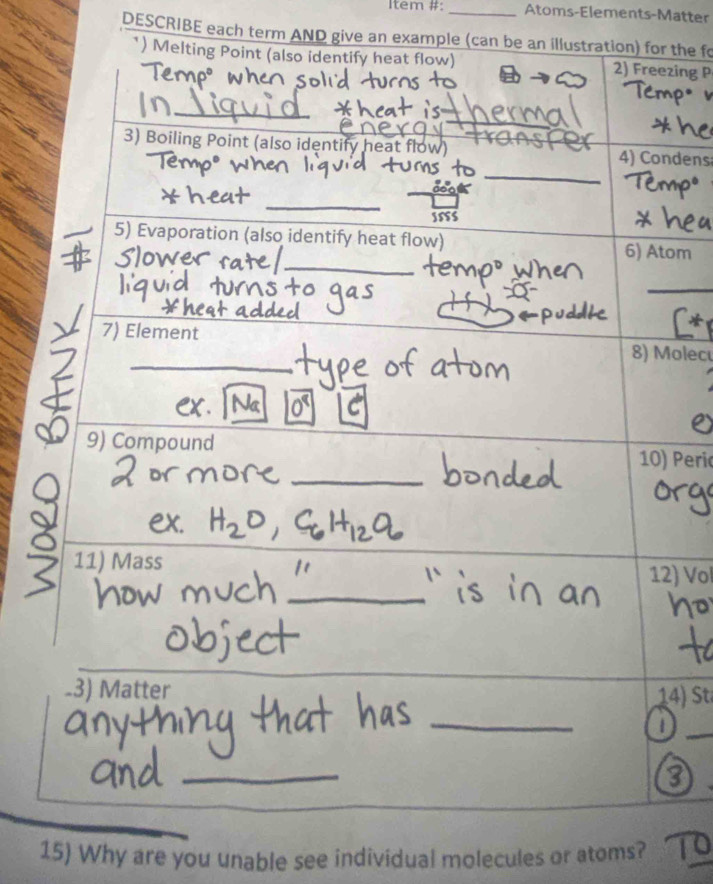 Item #: ______ Atoms-Elements-Matter
DESCRIBE each term AND give an example (can be an illustration) for the
) Melting Point (also identify heat flow)
Tempº when solid turns to
In liquid *heat is thermal
energy transfer
2) Freezing P
Tempº
*he
3) Boiling Point (also identify heat flow)
Tempº when liquid turns to ______
*heat ______
4) Condens
Tempº
*hea
5) Evaporation (also identify heat flow)
slower rate/______ tempº when
liquid turns to gas
*heat added
puddle
6) Atom
______
7) Element
______ type of atom
ex. Na O C
8) Molecu
9) Compound
2 or more ______ bonded
ex. H₂O,
10) Peri
org
11) Mass
how much "______" is in an
object
12) Vol
3) Matter
anything that has ______
and ______
14) St
① __
③
15) Why are you unable see individual molecules or atoms? TO
WORD BANK #1